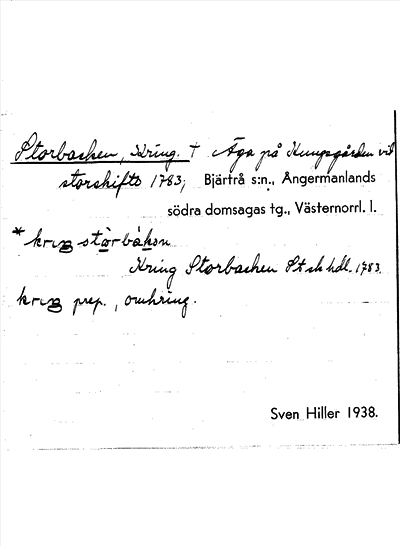 Storbacken, Kring. † Äga på Kungsgården vid
storskifte 1783; Bjärtrå s:n., Ångermanlands
södra domsagas tg., Västernorrl. l.
* kriŋ stòrbákən
Kring Storbacken St sk hdl. 1783.
kriŋ prep., omkring.
Sven Hiller 1938.